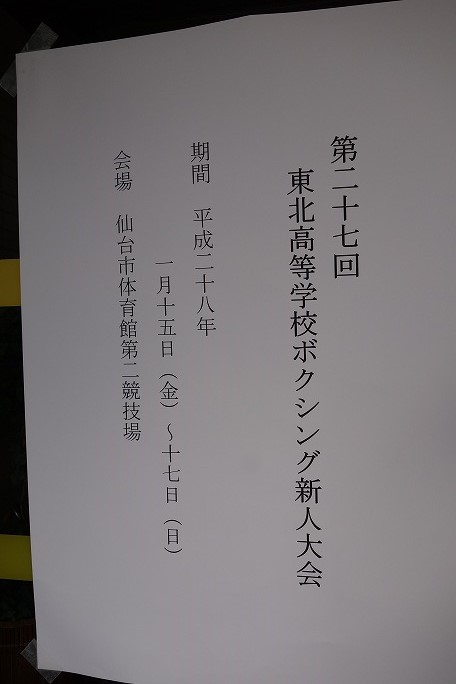 第二十七回
東北高等学校ボクシング新人大会
期間　平成二十八年
一月十五日（金）～十七日（日）
会場　仙台市体育館第二競技場